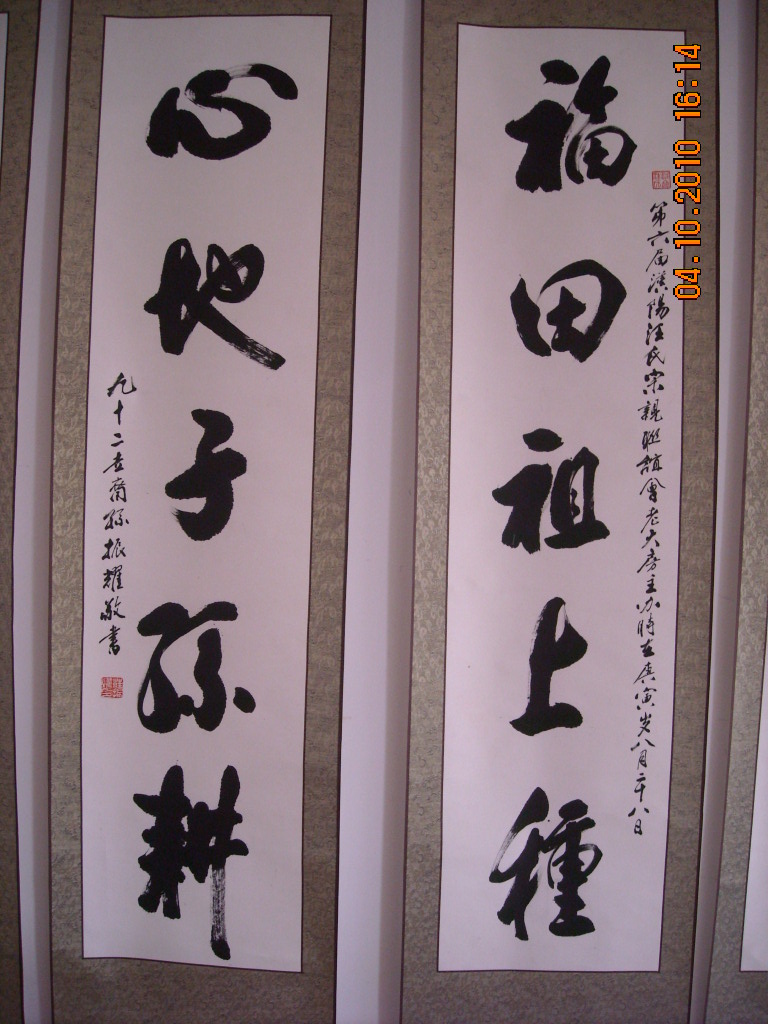 福田祖上種
第六届陽汪氏宗親聯誼會老大房主办時在庚寅岁八月二十八日
心地子孫耕
九十二世裔孫振耀敬書
04.10.2010 16:14